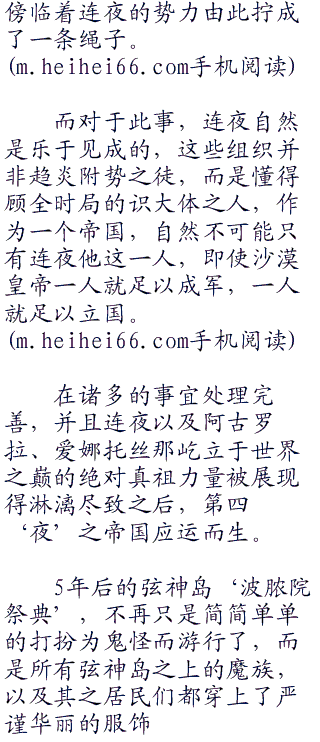 傍临着连夜的势力由此拧成
了一条绳子。
(m.heihei66.com手机阅读)
而对于此事，连夜自然
是乐于见成的，这些组织并
非趋炎附势之徒，而是懂得
顾全时局的识大体之人，作
为一个帝国，自然不可能只
有连夜他这一人，即使沙漠
皇帝一人就足以成军，一人
就足以立国。
(m.heihei66.com手机阅读)
在诸多的事宜处理完
善，并且连夜以及阿古罗
拉、爱娜托丝那屹立于世界
之巅的绝对真祖力量被展现
得淋漓尽致之后，第四
‘夜’之帝国应运而生。
5年后的弦神岛‘波脓院
祭典’，不再只是简简单单
的打扮为鬼怪而游行了，而
是所有弦神岛之上的魔族，
以及其之居民们都穿上了严
谨华丽的服饰